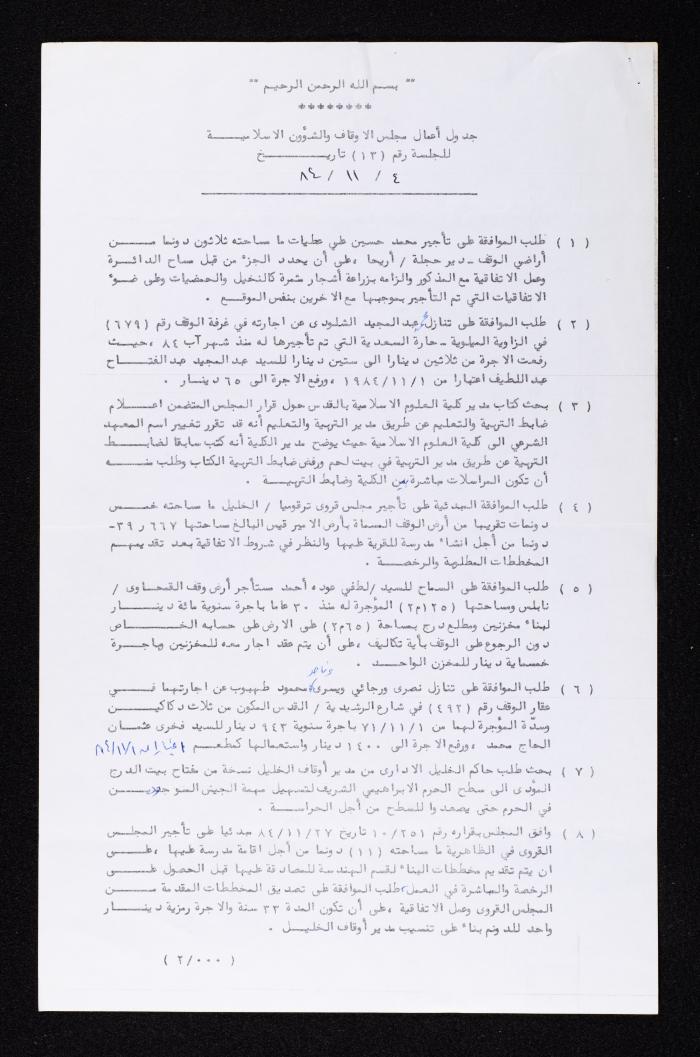 "" بسم الله الرحمن الرحيم ""
********
جدول أعمال مجلس الاوقاف والشؤون الاسلاميـــة
للجلسة رقم (١٣) تاريـــخ
٤ / ١١ / ٨٤
(١) طلب الموافقة على تأجير محمد حسين علي عطيات ما مساحته ثلاثون دونما مــن
أراضي الوقف - دير حجلة / أريحا ،على أن يحدد الجزء من قبل مساح الدائــرة
وعمل الاتفاقية مع المذكور والزامه بزراعة أشجار مثمرة كالنخيل والحمضيات وعلى ضـوء
الاتفاقيات التي تم التأجير بموجبها مع الاخرين بنفس الموقــع .
(٢) طلب الموافقة على تنازل عبد المجيد الشلودى عن اجارته في غرفة الوقف رقم (٦٧٩)
في الزاوية الميلوية - حارة السعدية التي تم تأجيرها له منذ شهر آب ٨٤ ،حيــث
رفعت الاجرة من ثلاثين دينارا الى ستين دينارا للسيد عبد المجيد عبد الفتــاح
عبد اللطيف اعتبارا من ١٩٨٤/١١/١ ،ورفع الاجرة الى ٦٥ دينار .
(٣) بحث كتاب مدير كلية العلوم الاسلامية بالقدس حول قرار المجلس المتضمن اعــلام
ضابط التربية والتعليم عن طريق مدير التربية والتعليم أنه قد تقرر تغيير اسم المعهد
الشرعي الى كلية العلوم الاسلامية حيث يوضح مدير الكلية أنه كتب سابقا لضابــط
التربية عن طريق مدير التربية في بيت لحم ورفض ضابط التربية الكتاب وطلب منــه
أن تكون المراسلات مباشرة بين الكلية وضابط التربيــة .
(٤) طلب الموافقة المبدئية على تأجير مجلس قروى ترقوميا / الخليل ما مساحته خمــس
دونمات تقريبا من أرض الوقف المسماة بأرض الامير قيس البالغ مساحتها ٦٦٧ر٣٩-
دونما من أجل انشاء مدرسة للقرية عليها والنظر في شروط الاتفاقية بعد تقديمهــم
المخططات المطلوبة والرخصــة .
(٥) طلب الموافقة على السماح للسيد /لطفي عوده أحمد مستأجر أرض وقف القمحاوى /
نابلس ومساحتها (١٢٥م٢) المؤجرة له منذ ٣٠ عاما باجرة سنوية مائة دينــار
لبناء مخزنين ومطلع درج بمساحة (٦٥م٢) على الارض على حسابه الخــاص
دون الرجوع على الوقف بأية تكاليف ،على أن يتم عقد اجار معه للمخزنين وباجــرة
خمسماية دينار للمخزن الواحــد .
(٦) طلب الموافقة على تنازل نصرى ورجائي ويسرى محمود طهبوب عن اجارتهما فــي
عقار الوقف رقم (٤٩٢) في شارع الرشيدية / القدس المكون من ثلاث دكاكيــن
وسدّة المؤجرة لهما من ٧١/١١/١ باجرة سنوية ٩٤٣ دينار للسيد فخرى عثمــان
الحاج محمد ،ورفع الاجرة الى ١٤٠٠ دينار واستعمالها كمطعــم
(٧) بحث طلب حاكم الخليل الادارى من مدير أوقاف الخليل نسخة من مفتاح بيت الدرج
المؤدى الى سطح الحرم الابراهيمي الشريف لتسهيل مهمة الجيش الموجوديــن
في الحرم حتى يصعدوا للسطح من أجل الحراســة .
(٨) وافق المجلس بقراره رقم ١٠/٢٥١ تاريخ ٨٤/١١/٢٧ مبدئيا على تأجير المجلــس
القروى في الظاهرية ما مساحته (١١) دونما من أجل اقامة مدرسة عليها ،علــى
ان يتم تقديم مخططات البناء لقسم الهندسة للمصادقة عليها قبل الحصول علــى
الرخصة والمباشرة في العمل ،طلب الموافقة على تصديق المخططات المقدمة مــن
المجلس القروى وعمل الاتفاقية ،على أن تكون المدة ٣٣ سنة والاجرة رمزية دينــار
واحد للدونم بناء على تنسيب مدير أوقاف الخليــل .
(٢/٠٠٠)